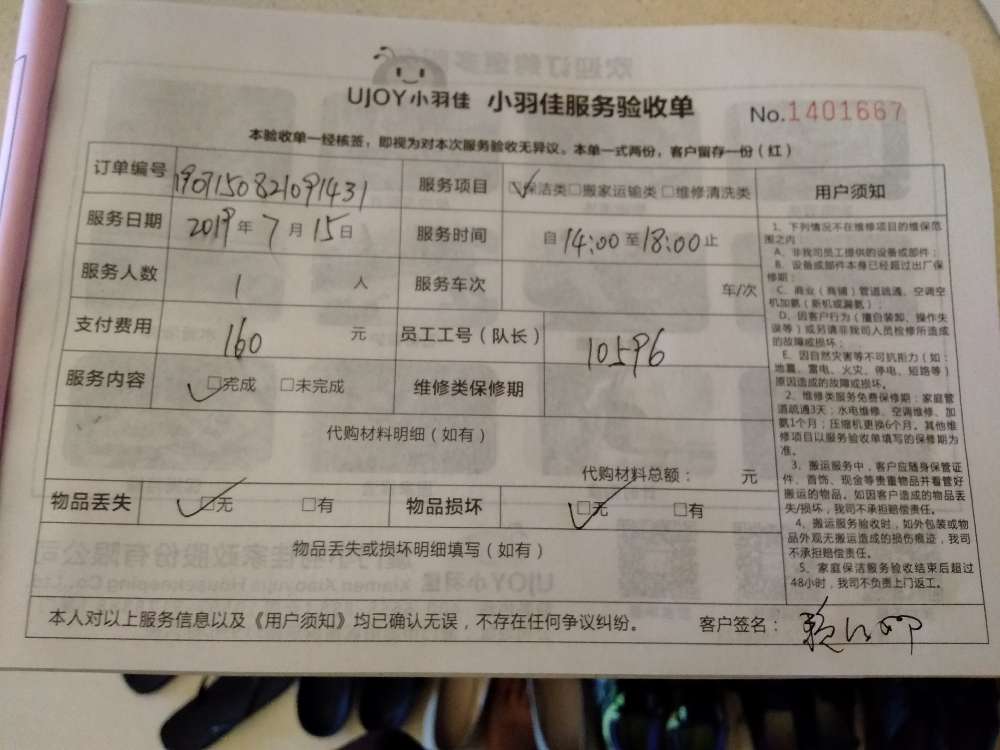 UJOY小羽佳 小羽佳服务验收单 No.1401667
本验收单一经核签，即视为对本次服务验收无异议。本单一式两份，客户留存一份（红）
订单编号 1907150821091431 服务项目 ☑保洁类□搬家运输类□维修清洗类
服务日期 2019年7月15日 服务时间 自14:00至18:00止
服务人数 1 人 服务车次 车/次
支付费用 160 元 员工工号（队长） 10596
服务内容 ☑完成 □未完成 维修类保修期
代购材料明细（如有）
代购材料总额： 元
物品丢失 ☑无 □有 物品损坏 ☑无 □有
物品丢失或损坏明细填写（如有）
用户须知
1、下列情况不在维修项目的维保范
围之内：
A、非我司员工提供的设备或部件；
B、设备或部件本身已经超过出厂保
修期；
C、商业（商铺）管道疏通、空调空
机加氨（新机或漏氨）；
D、因客户行为（擅自装卸、操作失
误等）或另请非我司人员检修所造成
的故障或损坏；
E、因自然灾害等不可抗拒力（如：
地震、雷电、火灾、停电、短路等）
原因造成的故障或损坏。
2、维修类服务免费保修期：家庭管
道疏通3天；水电维修、空调维修、加
氨1个月；压缩机更换6个月。其他维
修项目以服务验收单填写的保修期为
准。
3、搬运服务中，客户应随身保管证
件、首饰、现金等贵重物品并看管好
搬运的物品。如因客户造成的物品丢
失/损坏，我司不承担赔偿责任。
4、搬运服务验收时，如外包装或物
品外观无搬运造成的损伤痕迹，我司
不承担赔偿责任。
5、家庭保洁服务验收结束后超过
48小时，我司不负责上门返工。
本人对以上服务信息以及《用户须知》均已确认无误，不存在任何争议纠纷。 客户签名：